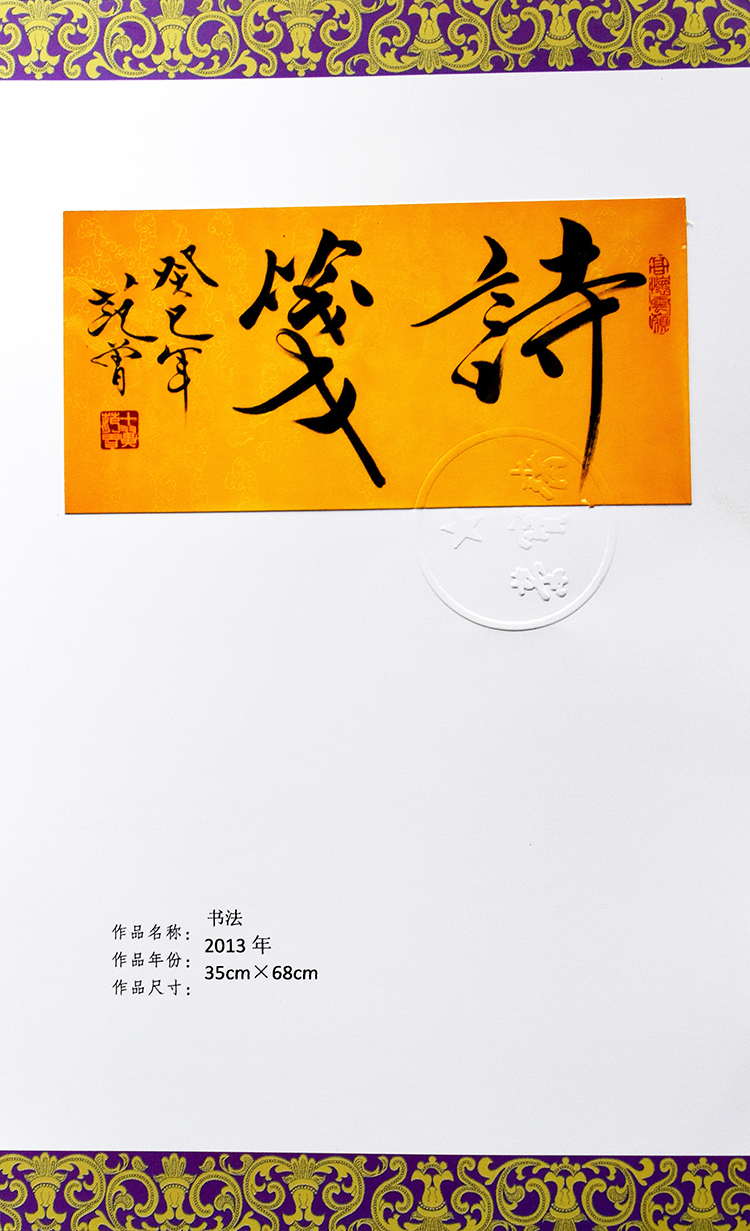 詩箋
癸巳年
范曾
作品名称：书法
作品年份：2013 年
作品尺寸：35cm×68cm